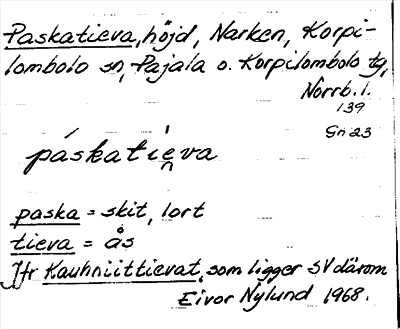 Paskatieva, höjd, Narken, Korpi-
lombolo sn, Pajala o. Korpilombolo tg,
Norrb. l.
139
Gn 23
páskatie̯va
paska = skit, lort
tieva = ås
Jfr Kauhniittievat, som ligger SV därom
Eivor Nylund 1968.